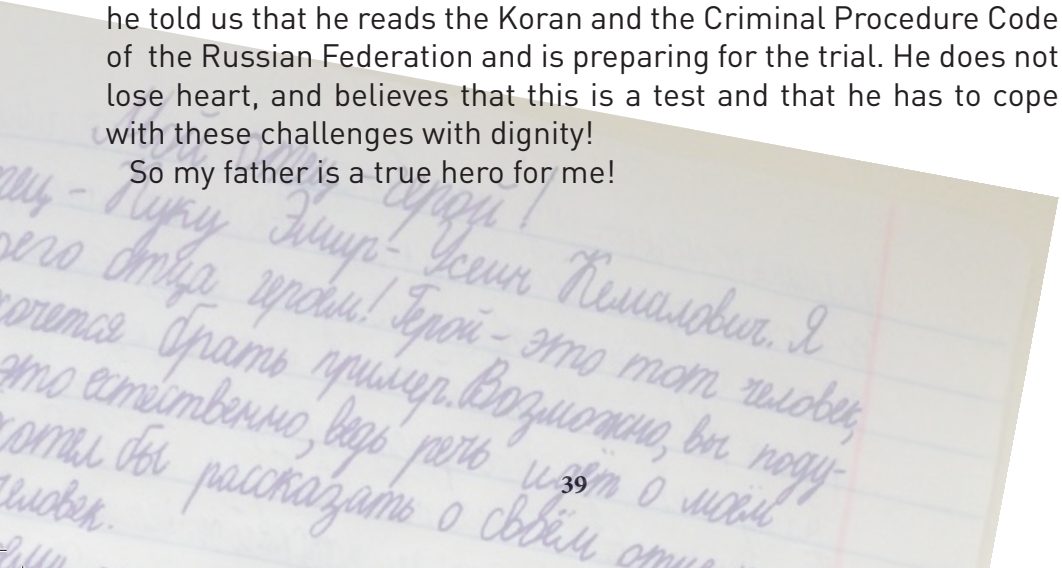 he told us that he reads the Koran and the Criminal Procedure Code
of the Russian Federation and is preparing for the trial. He does not
lose heart, and believes that this is a test and that he has to cope
with these challenges with dignity!
So my father is a true hero for me!
Мой отец - герой!
тец - Куку Эмир-Усеин Кемалович. Я
оего отца героем! Герой - это тот человек,
хочется брать пример. Возможно, вы поду-
это естественно, ведь речь идёт о моём
хотел бы рассказать о своём отце
человек.
39